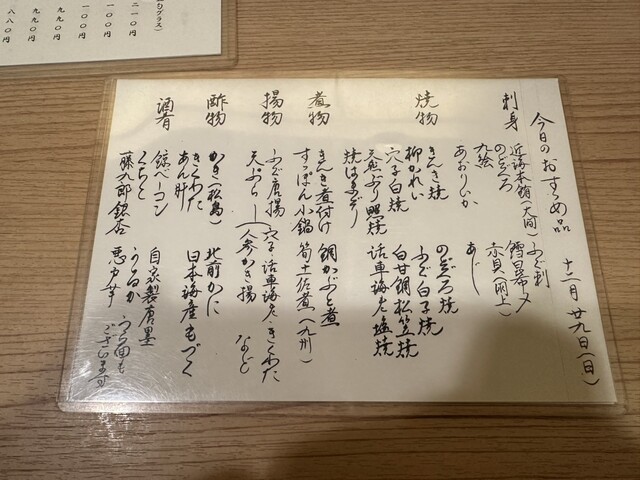 今日のおすゝめ品　十二月廿九日(日)
刺身　近海本鮪(大間)　ふぐ刺
のどぐろ
九絵　赤貝(閖上)
あおりいか　あじ
焼物　きんき焼　のどぐろ焼
柳かれい　ふぐ白子焼
穴子白焼　白甘鯛松笠焼
天然ぶり照焼　活車海老塩焼
焼はまぐり
煮物　きんき煮付け　鯛かぶと煮
すっぽん小鍋　筍土佐煮(九州)
揚物　ふぐ唐揚　穴子・活車海老・きくわた
天ぷら　人参かき揚　など
酢物　かき(松島)　北前かに
きくわた　日本海産もづく
あん肝
酒肴　鯨ベーコン　自家製唐墨
くちこ　うるか
藤九郎銀杏　うら面も
ございます
二一〇円
一〇〇円
一〇〇円
九九〇円
九九〇円
八八〇円